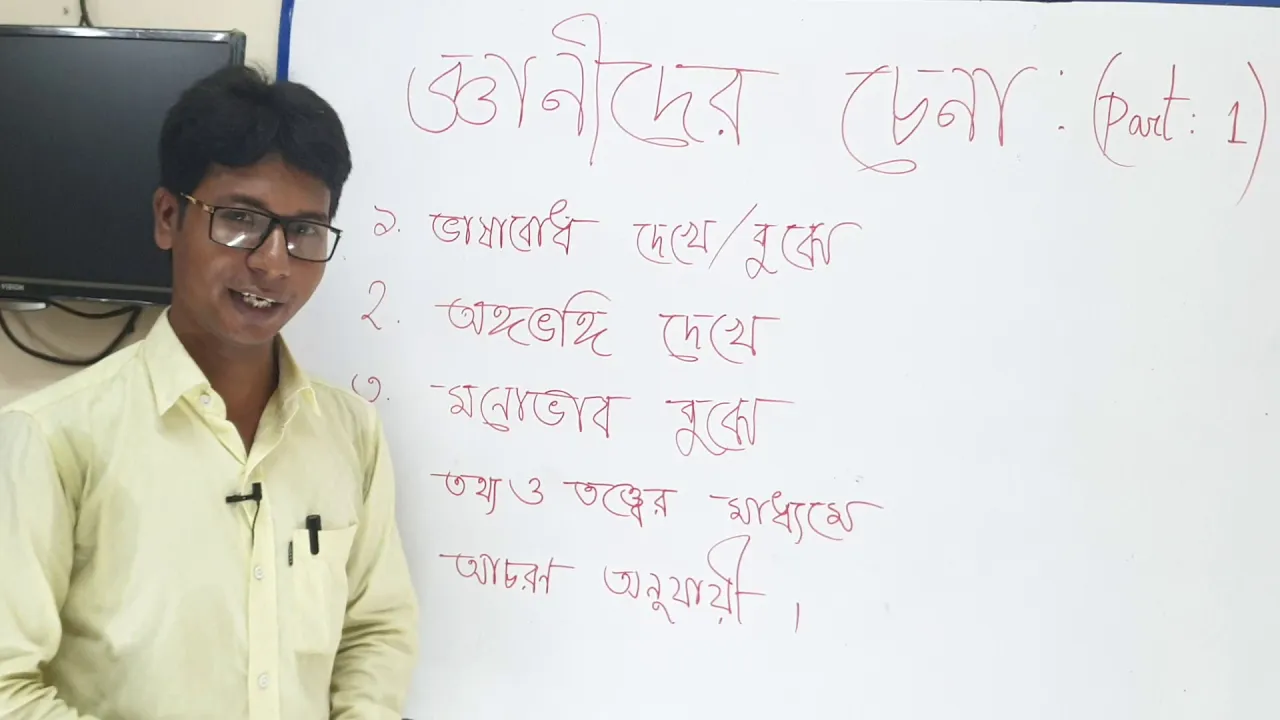 জ্ঞানীদের চেনা : (Part : 1)
১. ভাষাবোধ দেখে/বুঝে
২. অঙ্গভঙ্গি দেখে
৩. মনোভাব বুঝে
তথ্য ও তত্ত্বের মাধ্যমে
আচরণ অনুযায়ী ।
VISION